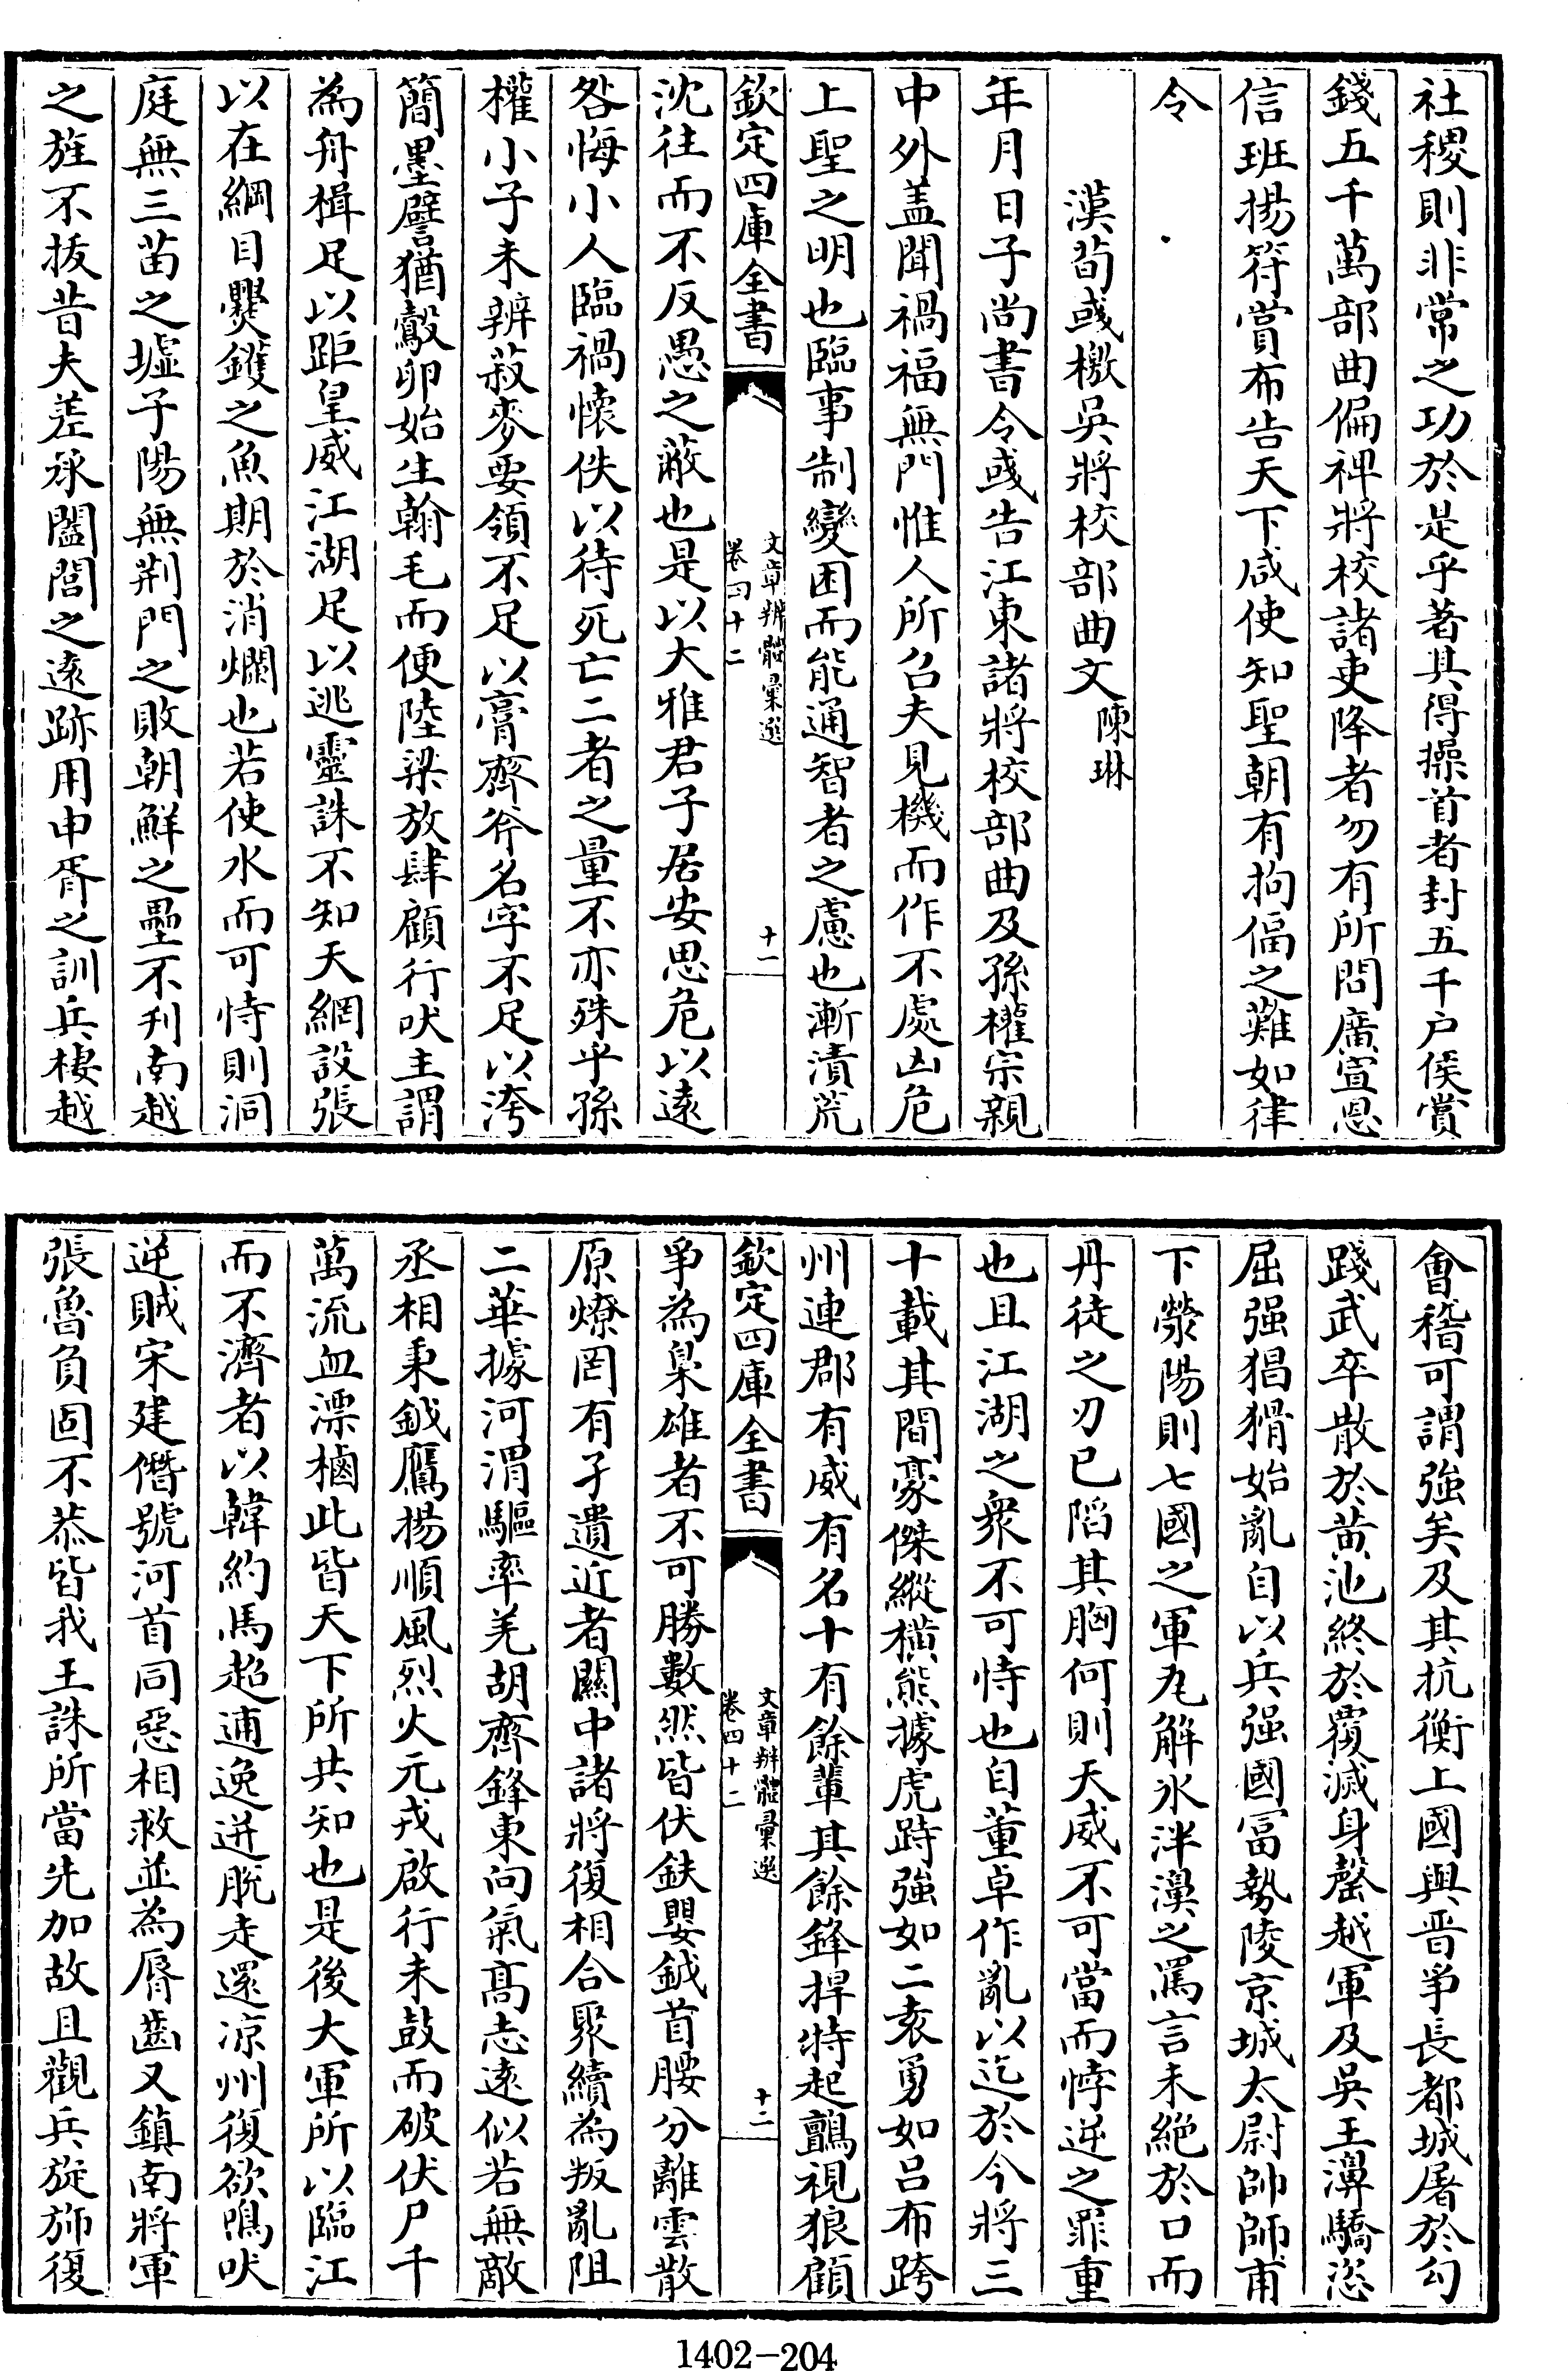 社稷則非常之功於是乎著其得操首者封五千户侯賞
錢五千萬部曲偏裨將校諸吏降者勿有所問廣宣恩
信班揚符賞布告天下咸使知聖朝有拘偪之難如律
令
漢荀彧檄吳將校部曲文陳琳
年月日子尚書令彧告江東諸將校部曲及孫權宗親
中外盖聞禍福無門惟人所召夫見機而作不處凶危
上聖之明也臨事制變困而能通智者之慮也漸漬荒
欽定四庫全書
文章辨體彙選
卷四十二
十一
沈往而不反愚之蔽也是以大雅君子居安思危以遠
咎悔小人臨禍懷佚以待死亡二者之量不亦殊乎孫
權小子未辨菽麥要領不足以膏齊斧名字不足以洿
簡墨譬猶鷇卵始生翰毛而便陸梁放肆顧行吠主謂
為舟楫足以距皇威江湖足以逃靈誅不知天網設張
以在綱目爨鑊之魚期於消爛也若使水而可恃則洞
庭無三苗之墟子陽無荆門之敗朝鮮之壘不刋南越
之旌不拔昔夫差承闔閭之遠跡用申胥之訓兵棲越
會稽可謂強矣及其抗衡上國與晉爭長都城屠於勾
踐武卒散於黄池終於覆滅身罄越軍及吳王濞驕恣
屈强猖猾始亂自以兵强國富勢陵京城太尉帥師甫
下滎陽則七國之軍瓦解氷泮濞之罵言未絶於口而
丹徒之刃已䧟其胸何則天威不可當而悖逆之罪重
也且江湖之衆不可恃也自董卓作亂以迄於今將三
十載其間豪傑縱横熊據虎跱強如二袁勇如吕布跨
州連郡有威有名十有餘輩其餘鋒捍特起鸇視狼顧
欽定四庫全書
文章辨體彙選
卷四十二
十二
爭為梟雄者不可勝數然皆伏鈇嬰鉞首腰分離雲散
原燎罔有孑遺近者關中諸將復相合聚續為叛亂阻
二華據河渭驅率羌胡齊鋒東向氣髙志遠似若無敵
丞相秉鉞鷹揚順風烈火元戎啟行未鼓而破伏尸千
萬流血漂櫓此皆天下所共知也是後大軍所以臨江
而不濟者以韓約馬超逋逸迸脱走還涼州復欲鳴吠
逆賊宋建僭號河首同惡相救並為脣齒又鎮南將軍
張魯負固不恭皆我王誅所當先加故且觀兵旋斾復
1402-204